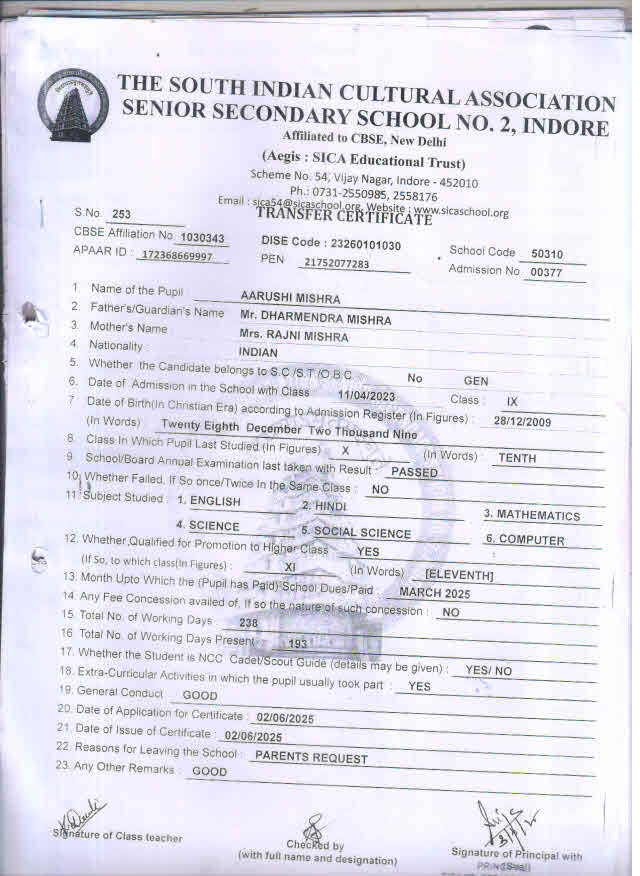 THE SOUTH INDIAN CULTURAL ASSOCIATION
SENIOR SECONDARY SCHOOL NO. 2, INDORE
Affiliated to CBSE, New Delhi
(Aegis : SICA Educational Trust)
Scheme No. 54, Vijay Nagar, Indore - 452010
Ph.: 0731-2550985, 2558176
Email : sica54@sicaschool.org, Website : www.sicaschool.org
TRANSFER CERTIFICATE
S.No. 253
CBSE Affiliation No. 1030343 DISE Code : 23260101030 School Code 50310
APAAR ID : 172368669997 PEN 21752077283 Admission No 00377
1. Name of the Pupil AARUSHI MISHRA
2. Father's/Guardian's Name Mr. DHARMENDRA MISHRA
3. Mother's Name Mrs. RAJNI MISHRA
4. Nationality INDIAN
5. Whether the Candidate belongs to S.C./S.T./O.B.C. No GEN
6. Date of Admission in the School with Class 11/04/2023 Class : IX
7 Date of Birth(In Christian Era) according to Admission Register (In Figures) : 28/12/2009
(In Words) Twenty Eighth December Two Thousand Nine
8 Class In Which Pupil Last Studied (In Figures) X (In Words) : TENTH
9 School/Board Annual Examination last taken with Result : PASSED
10. Whether Failed, If So once/Twice In the Same Class : NO
11. Subject Studied : 1. ENGLISH 2. HINDI 3. MATHEMATICS
4. SCIENCE 5. SOCIAL SCIENCE 6. COMPUTER
12. Whether Qualified for Promotion to Higher Class YES
(If So, to which class(In Figures) : XI (In Words) [ELEVENTH]
13. Month Upto Which the (Pupil has Paid) School Dues/Paid : MARCH 2025
14. Any Fee Concession availed of, If so the nature of such concession : NO
15. Total No. of Working Days 238
16. Total No. of Working Days Present 193
17. Whether the Student is NCC Cadet/Scout Guide (details may be given) : YES/ NO
18. Extra-Curricular Activities in which the pupil usually took part : YES
19. General Conduct GOOD
20. Date of Application for Certificate : 02/06/2025
21. Date of Issue of Certificate : 02/06/2025
22. Reasons for Leaving the School : PARENTS REQUEST
23. Any Other Remarks : GOOD
Signature of Class teacher
Checked by
(with full name and designation)
Signature of Principal with
(Seal)